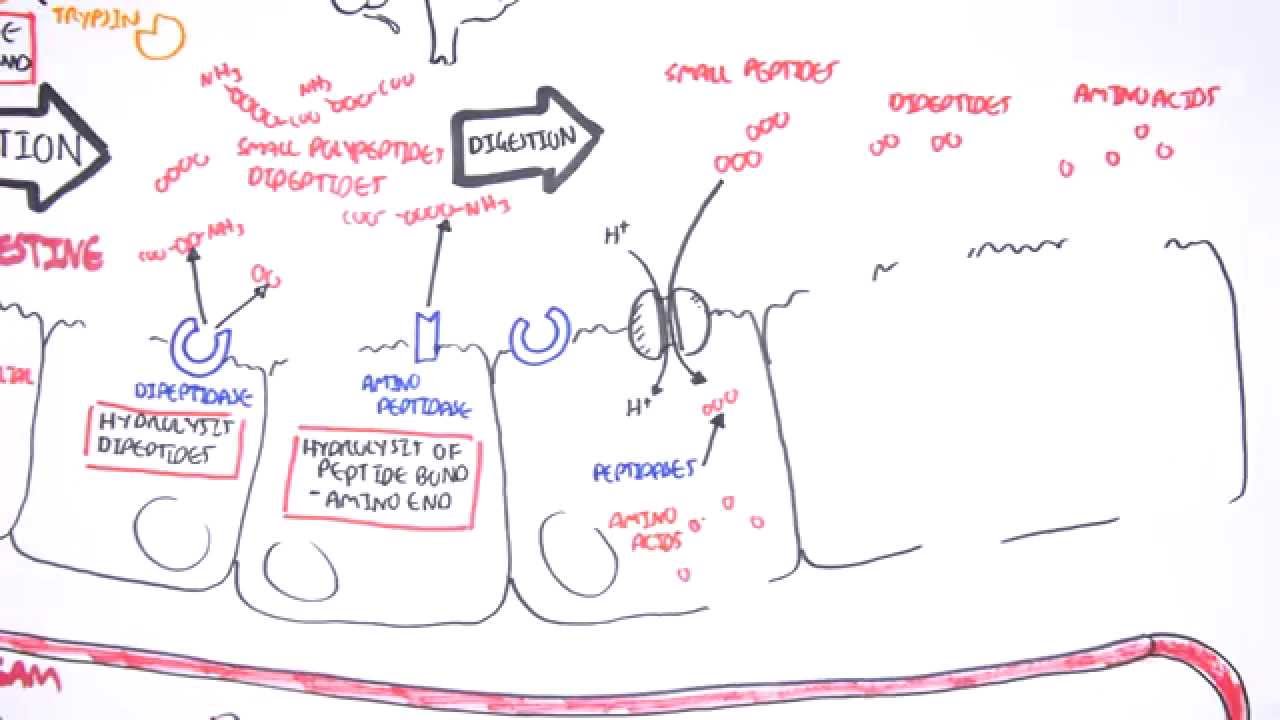 TRYPSIN
E
ND
NH3
NH3
COO
COO
SMALL PEPTIDES
DIPEPTIDES
AMINO ACIDS
TION
SMALL POLYPEPTIDES
DIPEPTIDES
DIGESTION
COO
NH3
H+
ESTINE
COO
NH3
DIPEPTIDASE
HYDROLYSIS
DIPEPTIDES
AMINO
PEPTIDASE
HYDROLYSIS OF
PEPTIDE BOND
- AMINO END
H+
PEPTIDASES
AMINO
ACIDS